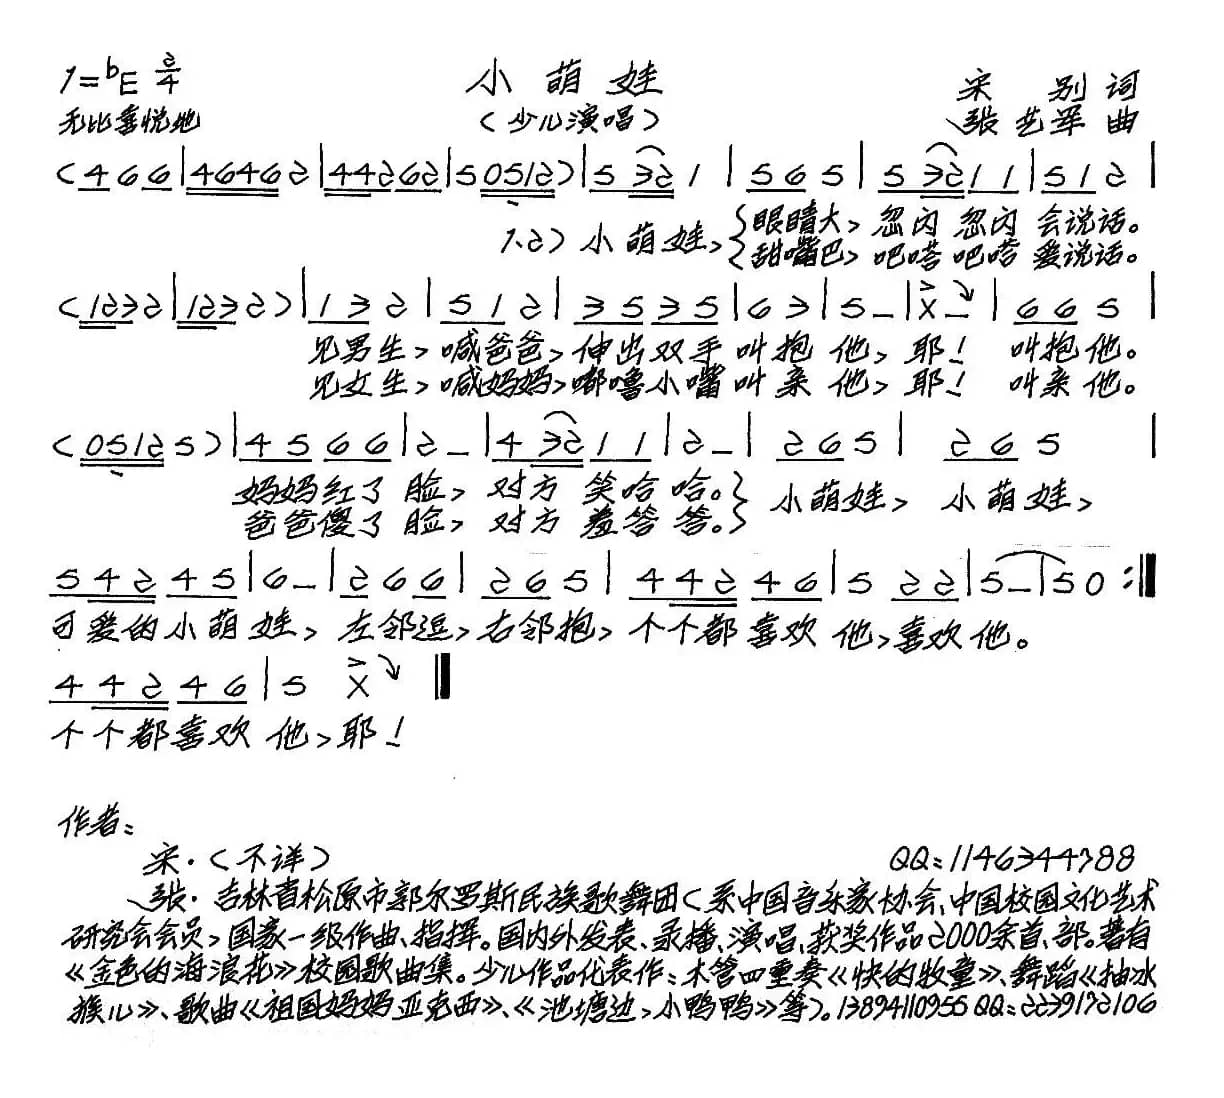 1=bE 2/4 小萌娃 宋 别 词
无比喜悦地 (少儿演唱) 张艺军 曲
(4 6 6|4 6 4 6 2|4 4 2 6 2|5 0 5 1 2)|5 3 2 1 |5 6 5|5 3 2 1 1|5 1 2|
1.2) 小萌娃,{眼睛大, 忽闪 忽闪 会说话。
{甜嘴巴, 吧嗒 吧嗒 爱说话。
(1 2 3 2|1 2 3 2)|1 3 2|5 1 2|3 5 3 5|6 3|5 -|X - |6 6 5|
见男生, 喊爸爸, 伸出双手 叫抱 他, 耶! 叫抱他。
见女生, 喊妈妈, 嘟噜小嘴 叫亲 他, 耶! 叫亲他。
(0 5 1 2 5)|4 5 6 6|2 -|4 3 2 1 1|2 -|2 6 5|2 6 5|
妈妈红了 脸, 对方 笑哈 哈。} 小萌娃, 小萌娃,
爸爸傻了 脸, 对方 羞答 答。}
5 4 2 4 5|6 -|2 6 6|2 6 5|4 4 2 4 6|5 2 2|5 -|5 0 :‖
可爱的小萌娃, 左邻逗, 右邻抱, 个个都喜欢 他, 喜欢他。
4 4 2 4 6|5 X ‖
个个都喜欢 他, 耶!
作者:
宋·(不详) QQ:1146344788
张·吉林省松原市郭尔罗斯民族歌舞团(系中国音乐家协会、中国校园文化艺术
研究会会员,国家一级作曲、指挥。国内外发表、录播、演唱、获奖作品2000余首、部。著有
《金色的海浪花》校园歌曲集。少儿作品代表作:木管四重奏《快的牧童》、舞蹈《抽冰
猴儿》、歌曲《祖国妈妈亚克西》、《池塘边,小鸭鸭》等)。13894110955 QQ:2239172106